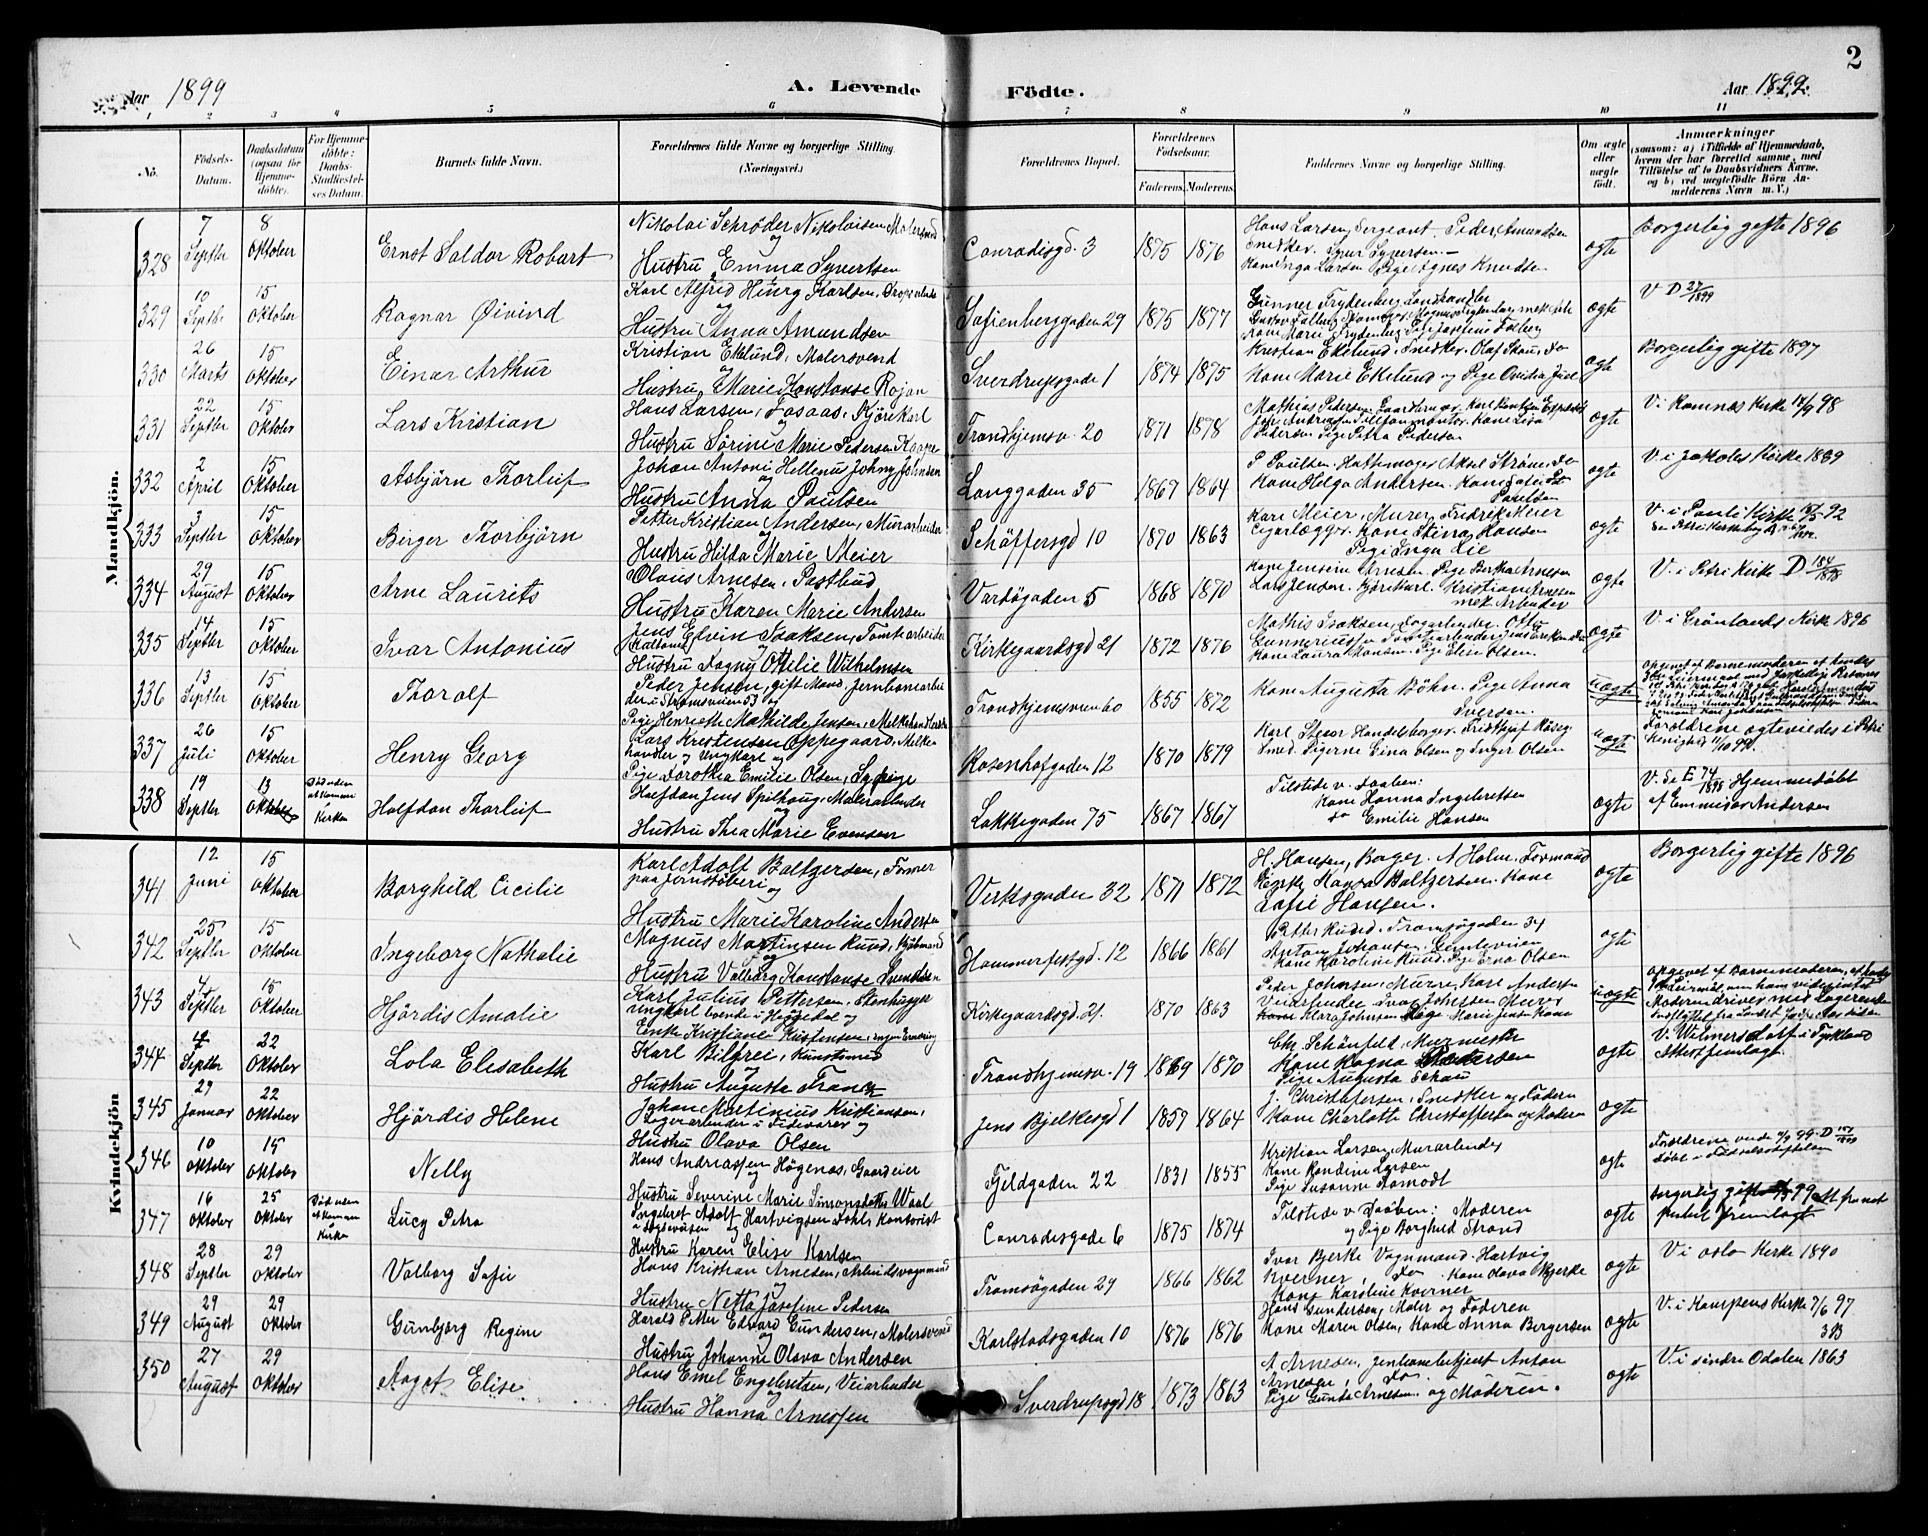 2
Aar 1899
A. Levende Födte.
Aar 1899.
1 2 3 4 5 6 7 8 9 10 11
No.
Födsels-Datum.
Daabsdatum (ogsaa for Hjemme-döbte).
For Hjemme-döbte: Daabs-Stadfæstel-ses Datum.
Barnets fulde Navn.
Forældrenes fulde Navne og borgerlige Stilling (Næringsvei.)
Forældrenes Bopæl.
Forældrenes Födselsaar.
Faderens. Moderens.
Faddernes Navne og borgerlige Stilling.
Om ægte eller uægte födt.
Anmærkninger
(saasom: a) i Tilfælde af Hjemmedaab, hvem der har forrettet samme, med Tilföielse af to Daabsvidners Navne, og b) ved uægtefödte Börn An-melderens Navn m. V.)
Mandkjön.
328 7 Septbr 8 Oktober Ernst Saldor Robart
Nikolai Schröder Nikolaisen Malersvend og
Hustru Emma Synertsen
Conradisgd. 3 1875 1876
Hans Larsen, Sergeant. Peder Amundsen
Snedker. Synur Synersen
Kone Inga Larsen Pige Agnes Knudsen
ægte Borgerlig gifte 1896
329 10 Septbr 15 Oktober Ragnar Øivind
Karl Alfred Karlsen,
Hustru Anna Amundsen
Sofienberggaden 29 1875 1877
ægte V D 27/1899
330 26 Marts 15 Oktober Einar Arthur
Kristian Ekelund, Malersvend og
Hustru Marie Konstanse Rojan
Sverdrupsgade 1 1874 1875
Kristian Ekelund, Snedker. Olaf Do
Kone Marie Ekelund og Pige Ovidia Juul
ægte Borgerlig gifte 1897
331 22 Septbr 15 Oktober Lars Kristian
Hans Larsen, Kjörekarl og
Hustru Sörine Marie Pedersen
Trondhjemsv. 20 1871 1878
Mathias Pedersen Gaardbruger.
Pedersen Pige Petra Pedersen
ægte V. i Kirke 98
332 2 April 15 Oktober Asbjörn Thorleif
Johan Antoni Hellenus Johnsen og
Hustru Anna Paulsen
Langgaden 35 1867 1864
P Paulsen. Hattemager Aksel Ström, Do
Kone Helga Andersen.
Paulsen
ægte V i Jakobs Kirke 1889
333 3 Septbr 15 Oktober Birger Thorbjörn
Petter Kristian Andersen, Murarbeider og
Hustru Hilda Marie Meier
Schöffersgd 10 1870 1863
Karl Meier, Murer, Fredrik Meier
Cigarlægger. Kone Stina Hansen
Pige Inga Lie
ægte V. i Pauls Kirke 92
334 29 August 15 Oktober Arne Laurits
Olaus Arnesen, Postbud
Hustru Karen Marie Andersen
Vardögaden 5 1868 1870
Kone Jensine Arnesen. Pige Bertha Arnesen
Lars Jensen. Kjörekarl. Kristian Arnesen
mek Arbeider
ægte V. i Petri Kirke D 184/1898
335 14 Septbr 15 Oktober Ivar Antonius
Jens Edvin Isaksen, Tomtearbeider og
Hustru Dagny Ottilie Wilhelmsen
Kirkegaardsgd 21 1872 1876
Mathis Isaksen, Lagerbeider. Otto
Kone Laura Hansen. Pige Elise Olsen.
ægte V. i Grönlands Kirke 1896
336 13 Septbr 15 Oktober Thorolf
Peder Jensen, gift Mand, Jernbanearbei
der i Strömsveien 53 og
Pige Henriette Mathilde Jensen, Melkehandlerske
Trondhjemsveien 60 1855 1872
Kone Augusta Böhn. Pige Anna
Iversen.
uægte
337 26 Juli 15 Oktober Henry Georg
Lars Kristensen Oppegaard, Melke
handler og Ungkarl og
Pige Dorothea Emilie Olsen, Sypige
Rosenhofgaden 12 1870 1879
Smed. Pigerne Gina Olsen og Inger Olsen
uægte Forældrene ægteviedes i Petri
Menighed 11/10 99.
338 19 Septbr 13 Oktober Död uden at komme i Kirken Halfdan Thorleif
Halfdan Jens Spilhaug, Malerarbeider
Hustru Thea Marie Evensen
Lakkegaden 75 1867 1867
Tilstede v. Daaben:
Kone Hanna Ingebretsen
Do Emilie Hansen
ægte V. Se E 74/1898 Hjemmedöbt
af Emmissær Andersen
Kvindekjön
341 12 Juni 15 Oktober Borghild Cicilie
Karl Adolf Baltzersen, Former
paa Jernstöberi og
Hustru Marie Karoline Andersen
Verksgaden 32 1871 1872
H. Hansen, Bager. A Holm. Formand
Hansa Baltzersen. Kone
Sofie Hansen.
ægte Borgerlig gifte 1896
342 25 Septbr 15 Oktober Ingeborg Nathalie
Magnus Martinsen Ruud, og
Hustru Valborg Konstanse Svendsen
Hammerfestgd. 12 1866 1861
Petter Ruud. Tromsögaden 34
Anton Johansen.
Kone Karoline Ruud. Pige Erna Olsen
ægte
343 4 Septbr 15 Oktober Hjördis Amalie
Karl Julius Pettersen, Stenhugger
ungkarl boende i Heggedal og
Enke Kristiane Kristensen, ingen Ernæring
Kirkegaardsgd. 21. 1870 1863
Peder Johansen, Murer, Karl Andersen
Veiarbeider Ivar Johnsen Murer
Klara Johnsen Pige Marie Jensen Kone
uægte
344 4 Septbr 22 Oktober Lola Elisabeth
Karl Bilfrei, Kunstsmed og
Hustru Augusta Franck
Trondhjemsv. 19 1869 1870
Chr. Schönfelt, Murmester
Kone Ragna
Pige Augusta Schau
ægte V. Wilmersdorf i Tyskland
Attest fremlagt.
345 29 Januar 22 Oktober Hjördis Helene
Johan Martinius Kristiansen,
Lagerarbeider i Fedevarer og
Hustru Olava Olsen
Jens Bjelkesgd 1 1859 1864
J. Christoffersen, Snedker og Faderen
Kone Charlotte Christoffersen og Moderen
ægte
346 10 Oktober 15 Oktober Nelly
Hans Andreassen Högenæs, Gaardeier og
Hustru Severine Marie Simonsdatter Waal
Fjeldgaden 22 1831 1855
Kristian Larsen, Murarbeider
Kone Randine Larsen
Pige Susanne Aamodt
ægte
347 16 Oktober 25 Oktober Död uden at komme i Kirke Lucy Petra
Ingebret Adolf Hartvigsen Dahl, Kontorist og
Hustru Karen Elise Karlsen
Conradisgade 6 1875 1874
Tilstede v Daaben: Moderen
og Pige Borghild Strand
ægte
348 28 Septbr 29 Oktober Valborg Sofie
Hans Kristian Arnesen, Arbeidsvognmand og
Hustru Netta Josefine Pedersen
Tromsögaden 29 1866 1862
Ivar Bjerke Vognmand. Hartvig
Kverner, Do. Kone Olava Bjerke
Kone Karoline Kverner
ægte V i Oslo Kirke 1890
349 29 August 29 Oktober Gunbjörg Regine
Harald Petter Edvard Gundersen, Malersvend og
Hustru Johanne Olava Andersen
Karlstadsgaden 10 1876 1876
Hans Gundersen, Maler og Faderen
Kone Maren Olsen, Kone Anna Bergersen
ægte V. i Kampens Kirke 7/6 97
3B
350 27 August 29 Oktober Aagot Elise
Hans Emel Engebretsen, Veiarbeider og
Hustru Hanna Arnessen
Sverdrupsgd 18 1873 1863
A Arnesen, Jernbanebetjent Anton
Arnesen, Do.
Pige Gunda Arnesen. og Moderen.
ægte V. i söndre Odalen 1863